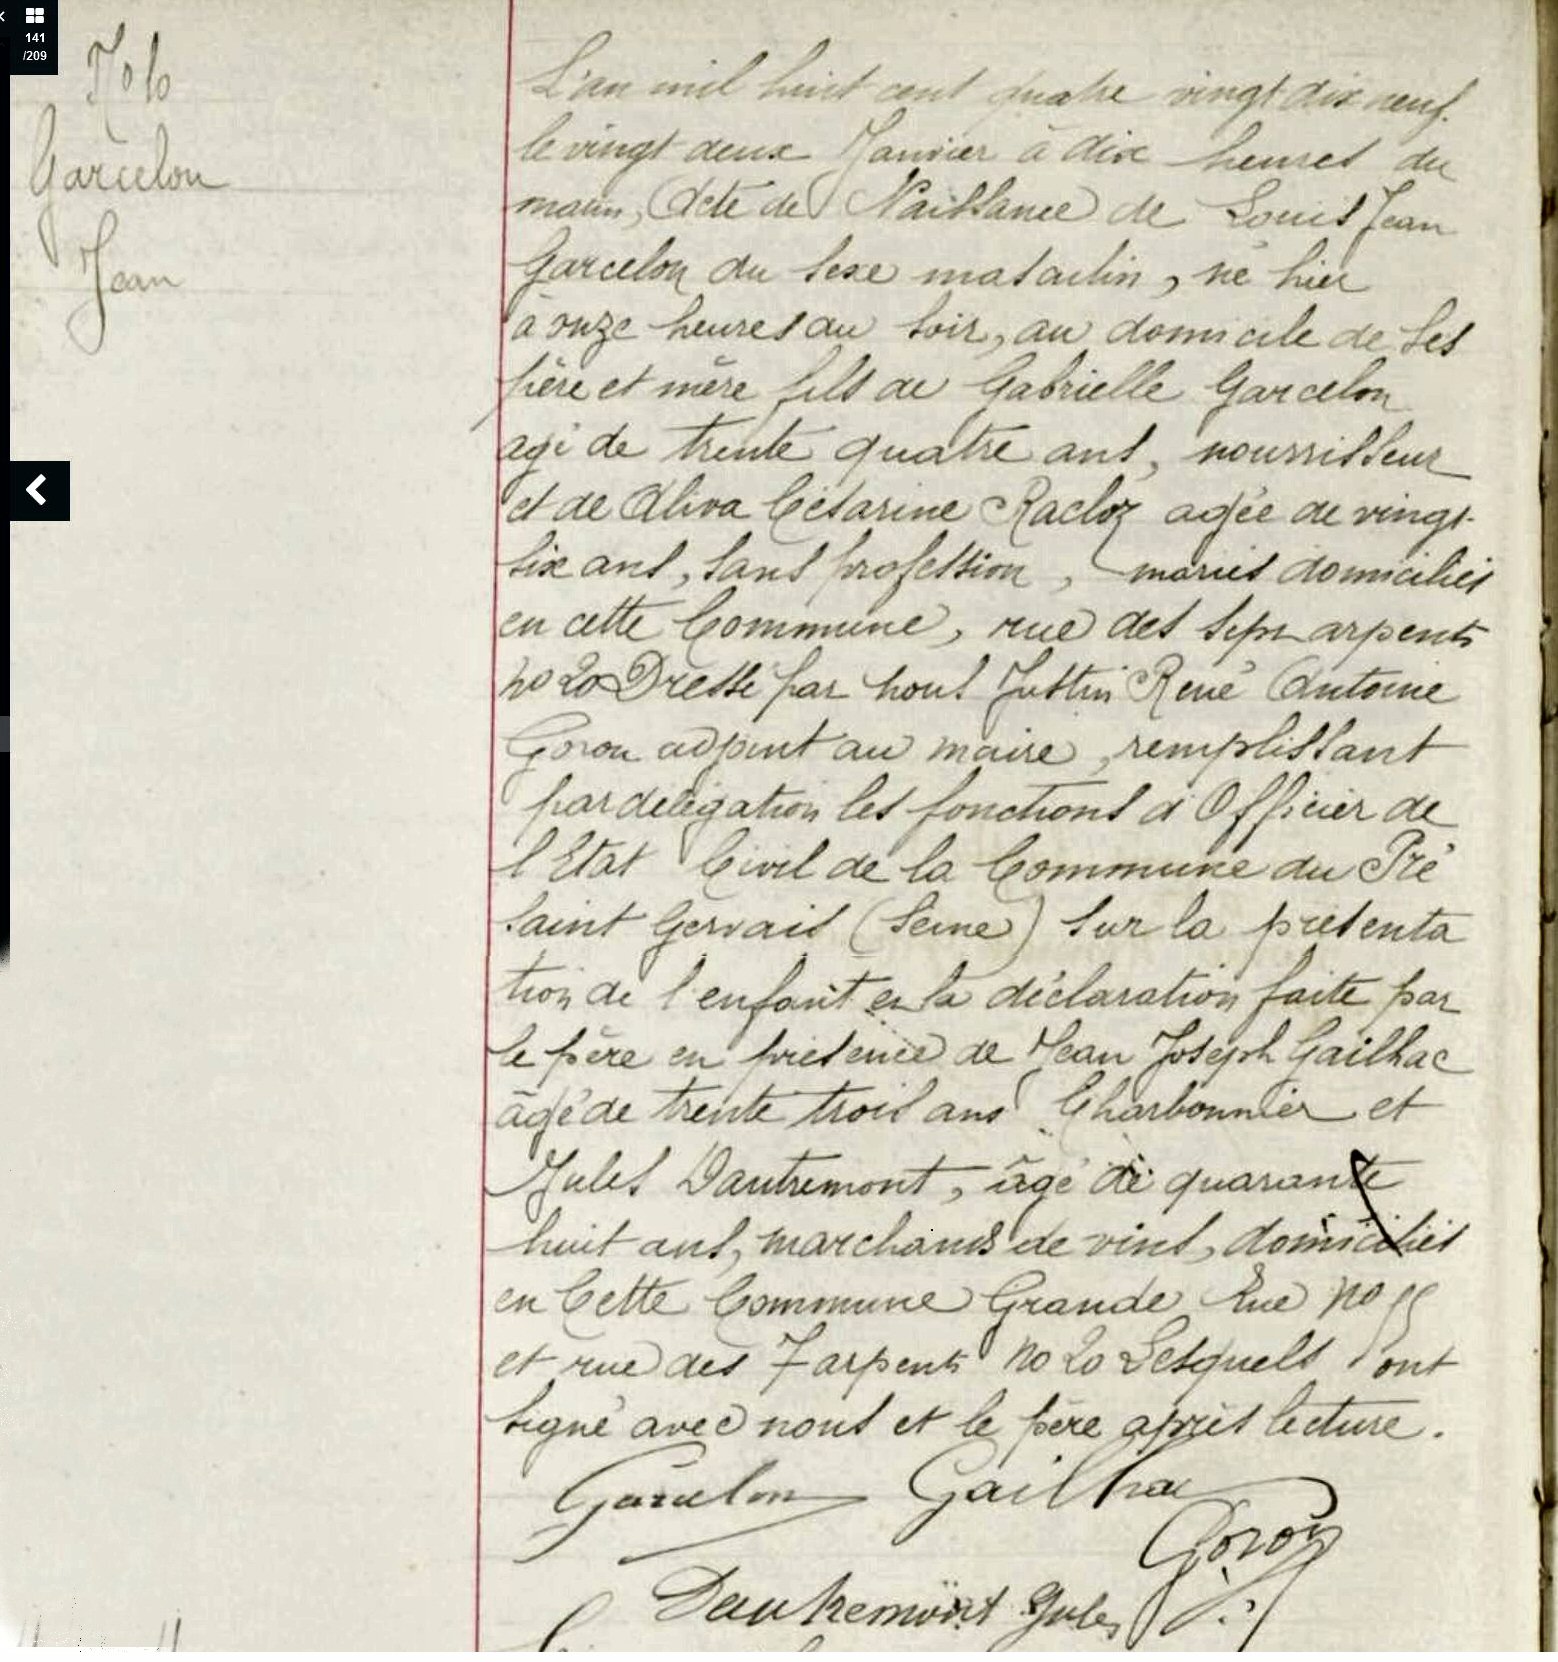 141
/209
No 10
Garcelon
Jean
L'an mil huit cent quatre vingt dix neuf
le vingt deux Janvier à dix heures du
matin, Acte de Naissance de Louis Jean
Garcelon du sexe masculin, né hier
à onze heures du soir, au domicile de ses
père et mère fils de Gabrielle Garcelon
agé de trente quatre ans, nourrisseur
et de Aliva Césarine Racloz agée de vingt-
six ans, sans profession, mariés domiciliés
en cette Commune, rue des sept arpents
no 20 Dressé par nous Justin René Antoine
Goron adjoint au maire, remplissant
par délégation les fonctions d'Officier de
l'Etat Civil de la Commune du Pré
Saint Gervais (Seine) sur la présenta
tion de l'enfant et la déclaration faite par
le père en présence de Jean Joseph Gailhac
âgé de trente trois ans Charbonnier et
Jules Dautremont, âgé de quarante
huit ans, marchands de vins, domiciliés
en cette Commune Grande Rue no
et rue des 7 arpents no 20 Lesquels ont
signé avec nous et le père après lecture.
Garcelon Gailhac
Goron
Dautremont Jules